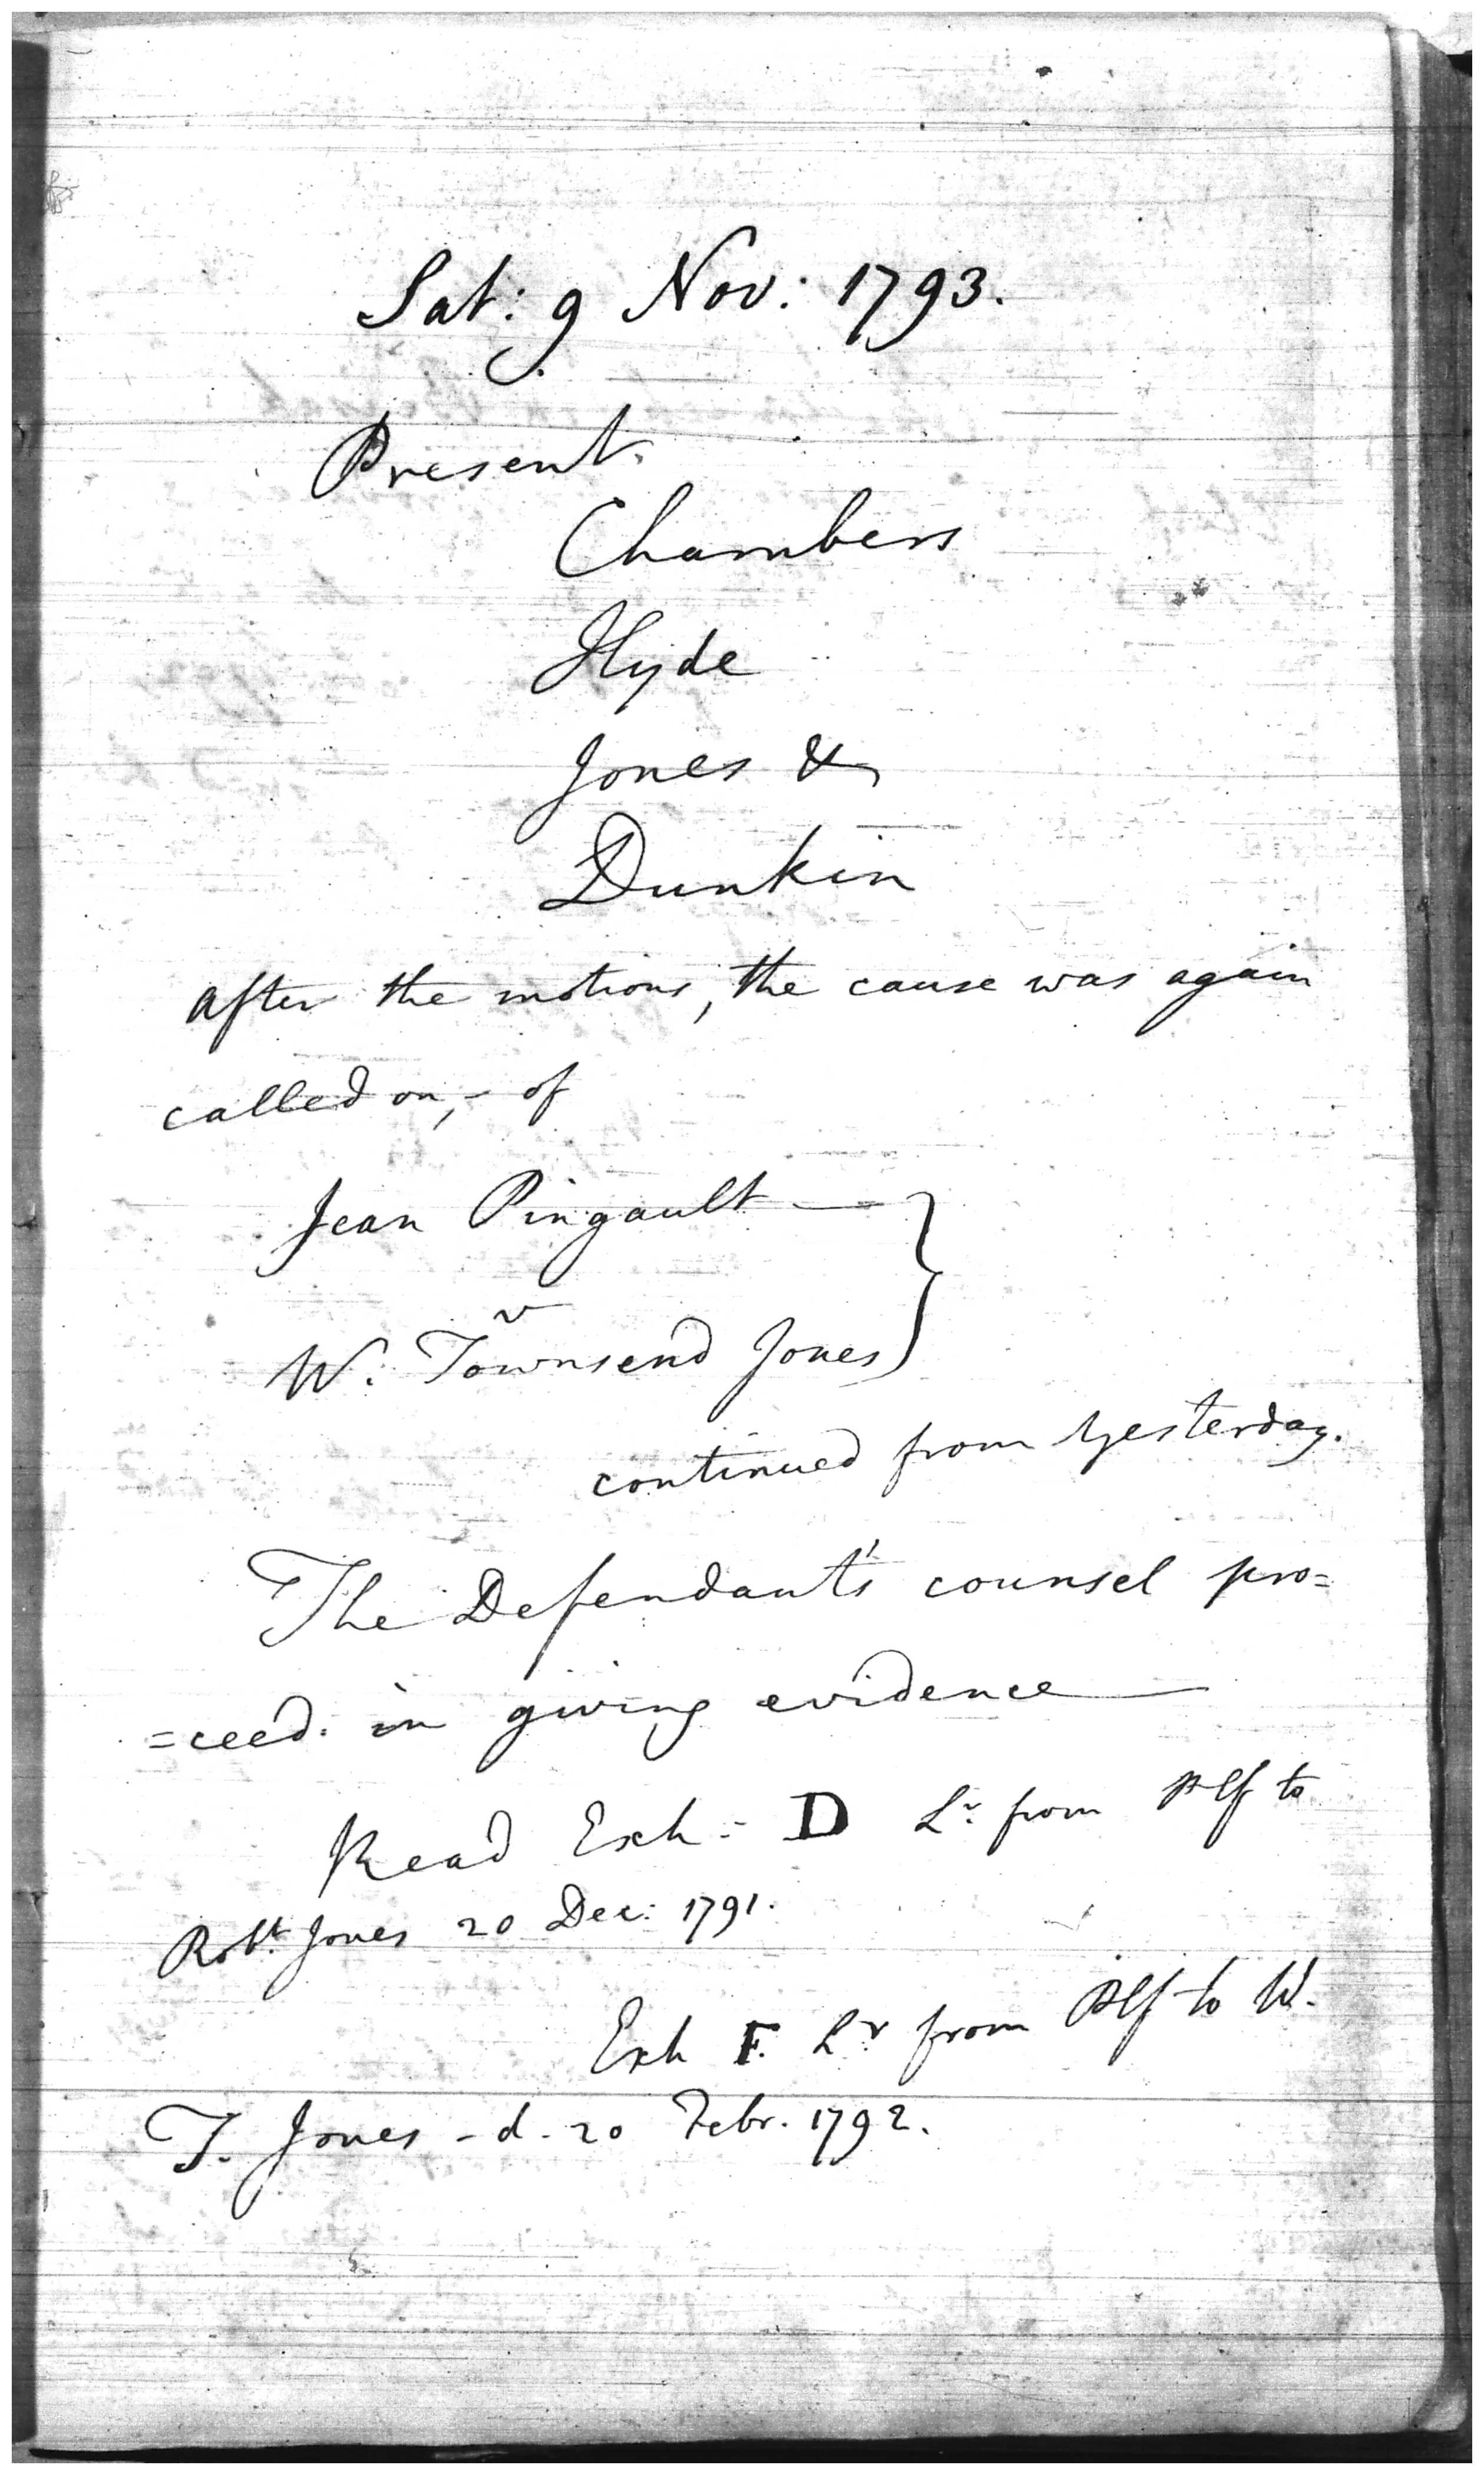 Sat: 9 Nov: 1793.
Present.
Chambers
Hyde
Jones &
Dunkin
After the motions, the cause was again
called on, - of
Jean Pingault — }
v
W. Townsend Jones
continued from yesterday.
The Defendant's counsel pro=
=ceed. in giving evidence —
Read Exh: D Lr. from Plf to
Robt. Jones 20 Dec: 1791.
Exh F. Lr. from Plf to W.
T. Jones - d. 20 Febr. 1792.